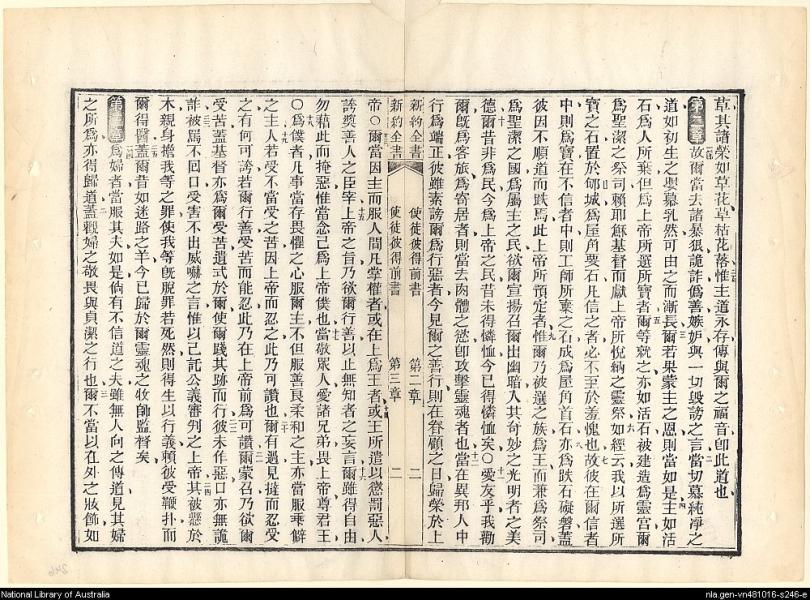 草其諸榮如草花草枯花落惟主道永存傳與爾之福音卽此道也
第二章 故爾當去諸暴狠詭詐僞善嫉妒與一切毀謗之言當切慕純凈之
道如初生之嬰慕乳然可由之而漸長爾若果蒙主之恩則當如是主如活
石爲人所棄但爲上帝所選所寶者爾等就之亦如活石被建造爲靈宮爾
爲聖潔之祭司賴耶穌基督而獻上帝所悅納之靈祭如經云我以所選所
寶之石置於郇城爲屋角要石凡信之者必不至於羞愧也故彼在爾信者
中則爲寶在不信者中則工師所棄之石成爲屋角首石亦爲趺石礙磐蓋
彼因不順道而趺焉此上帝所預定者惟爾乃被選之族爲王而兼爲祭司
爲聖潔之國爲屬主之民欲爾宣揚召爾出幽暗入其奇妙之光明者之美
德爾昔非爲民今爲上帝之民昔未得憐恤今已得憐恤矣〇愛友乎我勸
爾旣爲客旅爲寄居者則當去肉體之慾卽攻擊靈魂者也當在異邦人中
行爲端正彼雖素謗爾爲行惡者今見爾之善行則在眷顧之日歸榮於上
新約全書 使徒彼得前書 第二章 二
新約全書 使徒彼得前書 第三章 二
帝〇爾當因主而服人間凡掌權者或在上爲王者或王所遣以懲罰惡人
誇奬善人之臣宰上帝之旨乃欲爾行善以止無知者之妄言爾雖得自由
勿藉此而掩惡惟當念已爲上帝僕也當敬眾人愛諸兄弟畏上帝尊君王
〇爲僕者凡事當存畏懼之心服爾主不但服善良柔和之主亦當服乖僻
之主人若受不當受之苦因上帝而忍之此乃可讚也爾有過見撻而忍受
之有何可誇若爾行善受苦而能忍此乃在上帝前爲可讚爾蒙召乃欲爾
受苦蓋基督亦爲爾受苦遺式於爾使爾踐其跡而行彼未作惡口亦無詭
詐被罵不回口受害不出威嚇之言惟以己託公義審判之上帝其被懸於
木親身擔我等之罪使我等旣脫罪若死然則得生以行義賴彼受鞭扑而
爾得醫蓋爾昔如迷路之羊今已歸於爾靈魂之牧師監督矣
第三章 爲婦者當服其夫如是倘有不信道之夫雖無人向之傳道見其婦
之所爲亦得歸道蓋觀婦之敬畏與貞潔之行也爾不當以在外之妝飾如
246
National Library of Australia
nla.gen-vn481016-s246-e